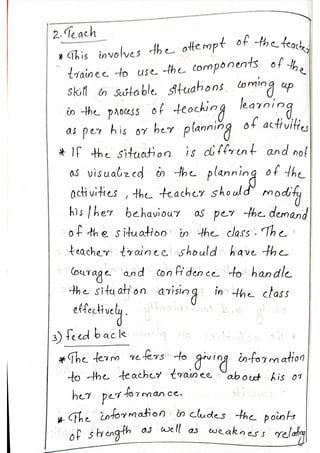 2. Teach
* This involves the attempt of the teacher
trainee to use the components of the
skill in suitable situations coming up
in the process of teaching learning
as per his or her planning of activities
* If the situation is diffrent and not
as visualized in the planning of the
activities, the teacher should modify
his/her behaviour as per the demand
of the situation in the class. The
teacher trainee should have the
courage and confidence to handle
the situation arising in the class
effectively.
3) feed back
* The term refers to giving information
to the teacher trainee about his or
her performance.
* The information in cludes the points
of strength as well as weakness relating